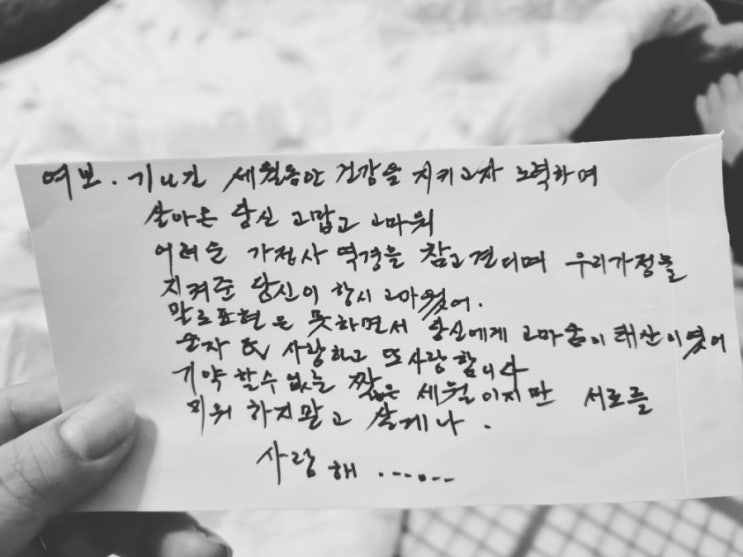 여보. 기나긴 세월동안 건강을 지키고자 노력하며
살아온 당신 고맙고 고마워
어려운 가정사 역경을 참고견디며 우리가정을
지켜준 당신이 항시 고마웠어.
말로표현은 못하면서 당신에게 고마움이 태산이였어
순자 사랑하고 또 사랑합니다
기약 할수 없는 짧은 세월이지만 서로를
미워 하지말고 살게나.
사랑해 .......